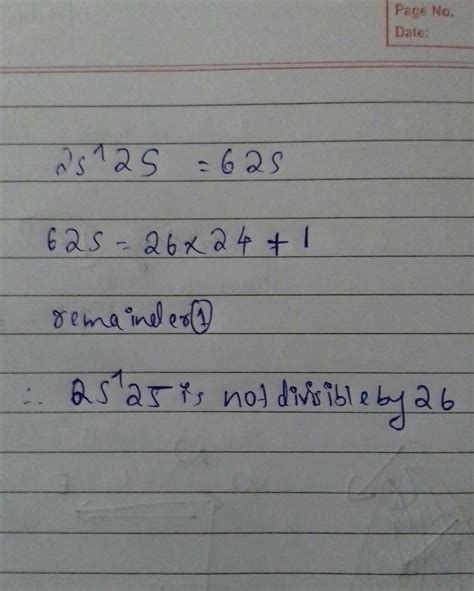 Page No.
Date:
25^25 = 625
625 = 26 x 24 + 1
remainder 1
∴ 25^25 is not divisible by 26